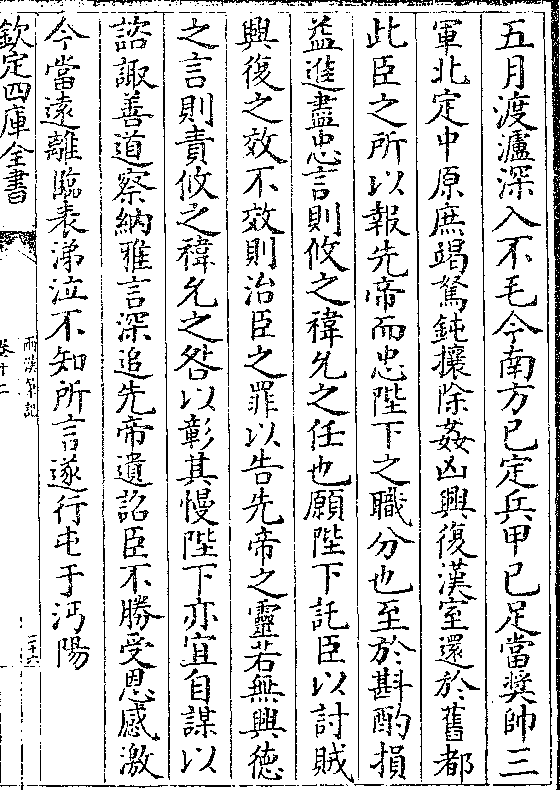 五月渡瀘深入不毛今南方已定兵甲已足當奬帥三
軍北定中原庶竭駑鈍攘除姦凶興復漢室還於舊都
此臣之所以報先帝而忠陛下之職分也至於斟酌損
益進盡忠言則攸之禕允之任也願陛下託臣以討賊
興復之效不效則治臣之罪以告先帝之靈若無興德
之言則責攸之禕允之咎以彰其慢陛下亦宜自謀以
諮諏善道察納雅言深追先帝遺詔臣不勝受恩感激
今當遠離臨表涕泣不知所言遂行屯于沔陽
欽定四庫全書
兩漢筆記
卷十二
二十六